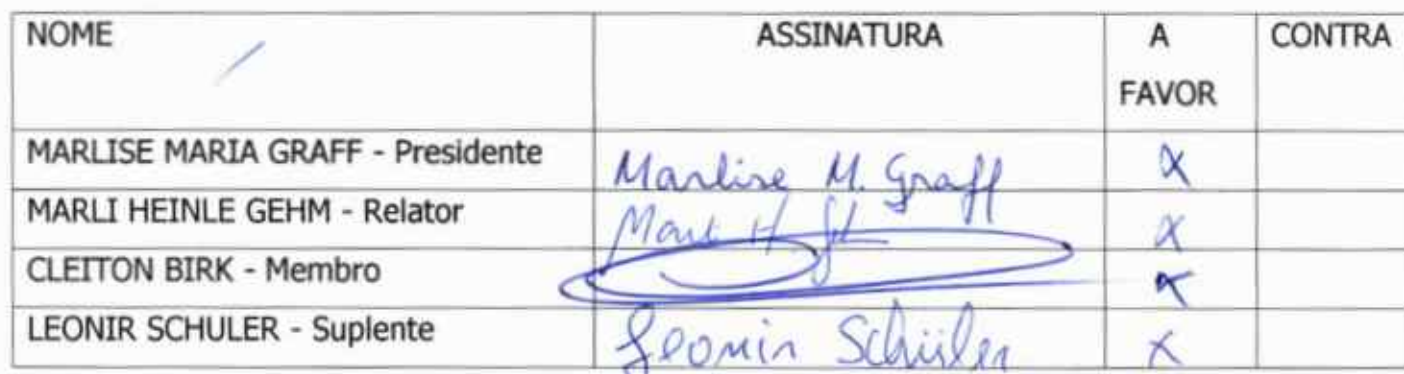 NOME ASSINATURA A FAVOR CONTRA
MARLISE MARIA GRAFF - Presidente Marlise M. Graff X
MARLI HEINLE GEHM - Relator Marli H. X
CLEITON BIRK - Membro X
LEONIR SCHULER - Suplente Leonir Schüler X